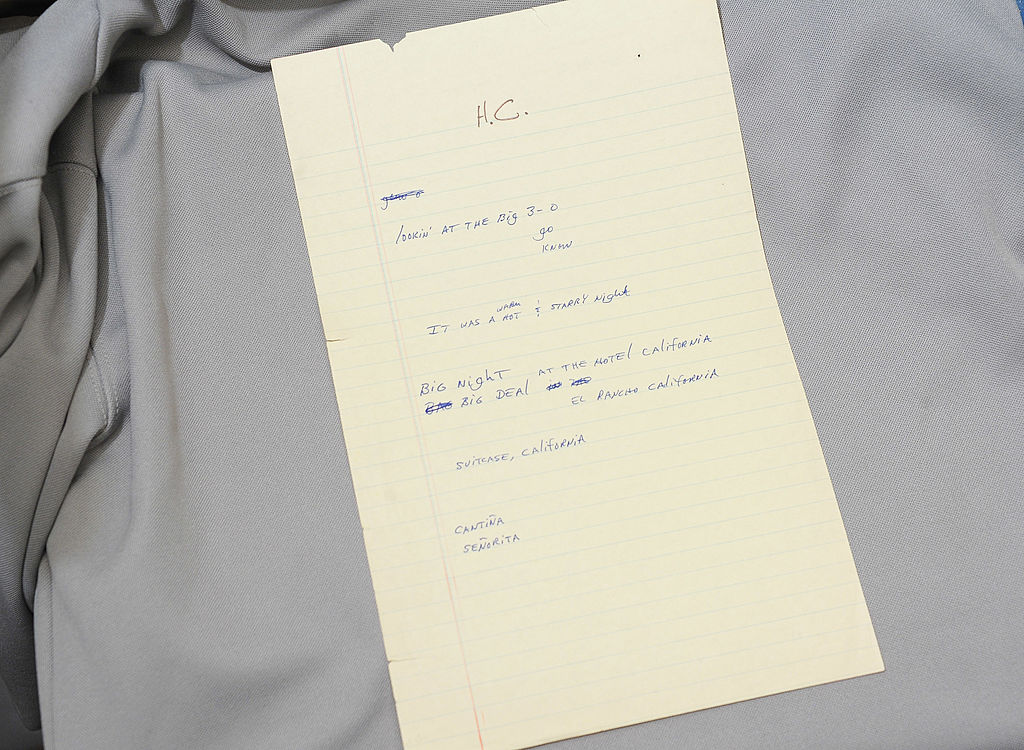 H.C.
lookin' AT THE Big 3-0
go
KNOW
WARM
IT WAS A HOT & STARRY Night
BIG NighT AT THE HOTEL CALiforNiA
BIG DEAL EL RANCHO CALiforNiA
SUiTCASE, CAliforNiA
CANTiÑA
SEÑORiTA